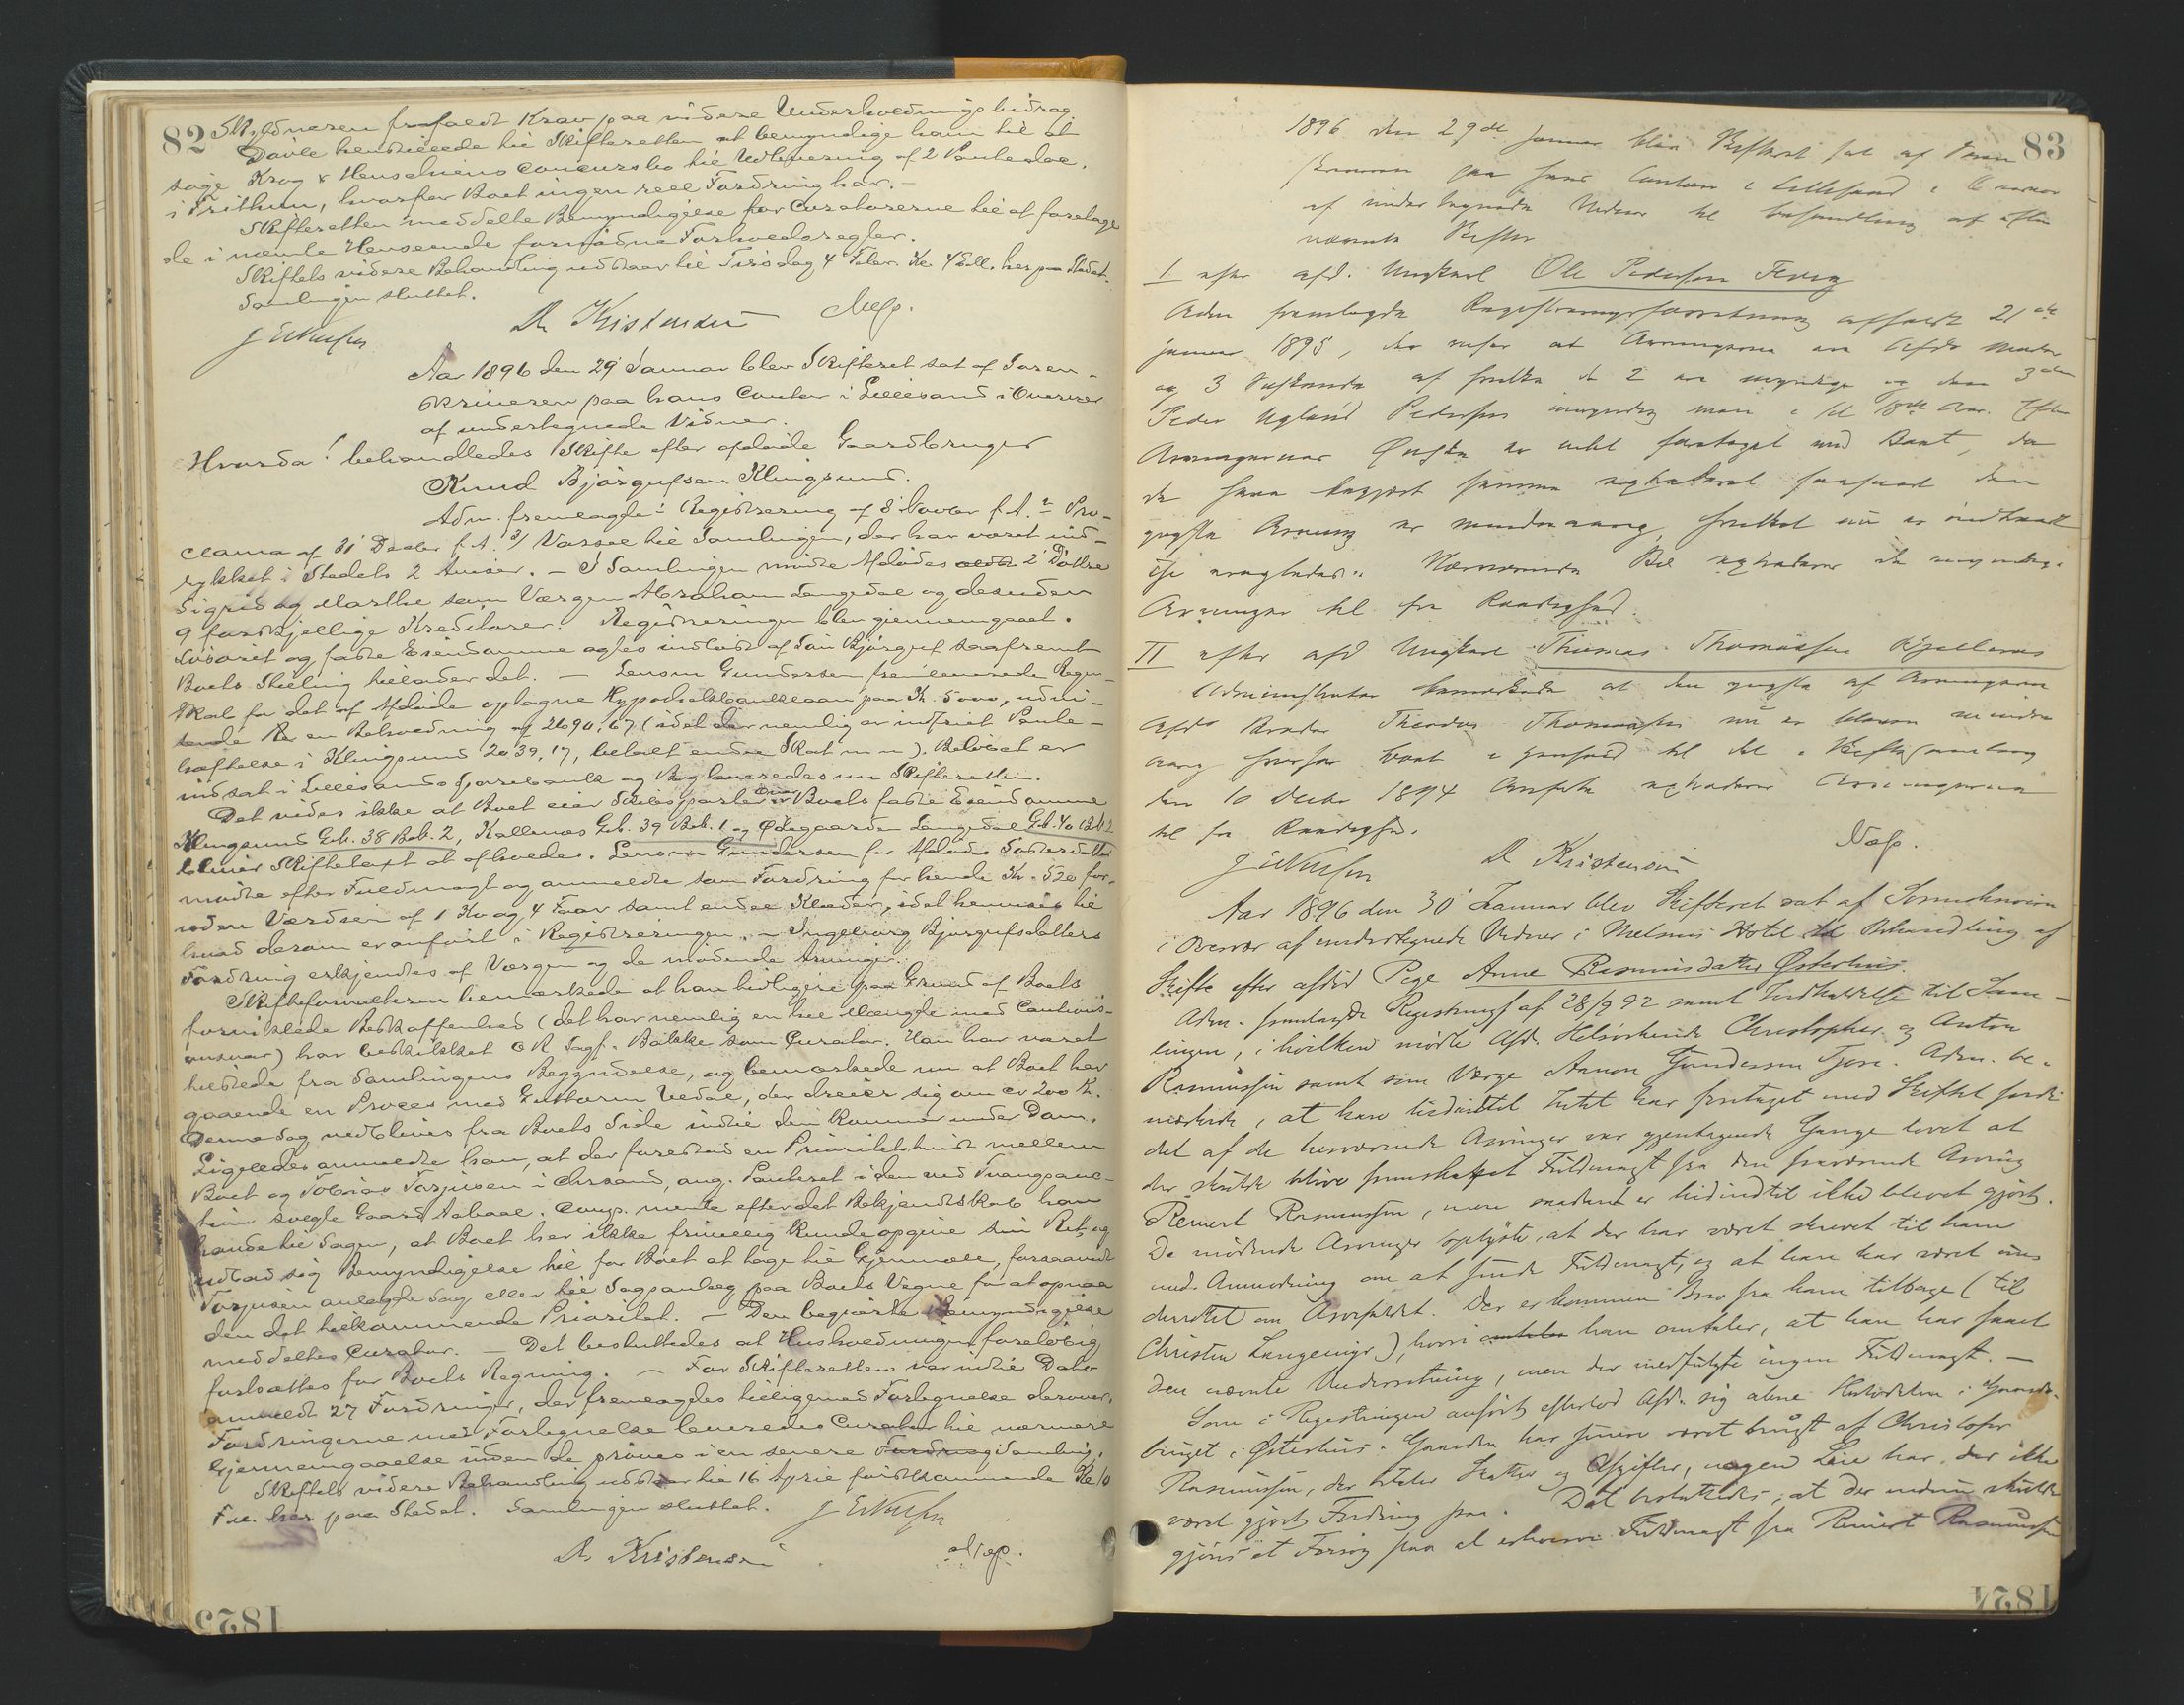 82
Skyldneren frafaldt Krav paa videre Underholdningsbidrag.
Dävle henstillede til Skifteretten at bemyndige ham til at
søge Krog & Henschiens Concursbo til Udlevering af 2 Pantedoc.
i Frithun, hvorfor Boet ingen reel Fordring har. -
Skifteretten meddelte Bemyndigelse for Curatorerne til at foretage
de i nævnte Henseende fornødne Forholdsregler.
Skiftets videre Behandling udstaar til Tirsdag 4 Febr. Kl. 4 Eftl. her paa Stedet.
Samlingen sluttet.
D. Kristensen
Aar 1896 den 29 Januar blev Skifteret sat af Soren-
skriveren paa hans Contor i Lillesand i Overvær
af undertegnede Vidner.
Hvorda! behandledes Skifte efter afdøde Gaardbruger
Knud Bjørgufsen Klingsund.
Adm. fremlagde 1 Registrering af 8 f. A. 2 Pro-
clama af 31 Decbr f. A. 3/ Varsel til Samlingen, der har været ind-
rykket i Stedets 2 Aviser. - I Samlingen mødte Afdødes 2 Døttre
Sigrid og Marthe, som Værgen Abraham Langedal og desuden
9 forskjellige Kreditorer. Registreringen blev gjennemgaaet.
Løsøret og faste Eiendomme agtes indløst af Søn Bjørguf saafremt
Boets Stilling tillader det. - Lensm Gundersen fremleverede Regn-
skab for det af Afdøde optagne Hypothekbanklaan paa Kr. 5000, udvi-
sende en Beholdning af 2690,67 (idet der nemlig er indfriet Pante-
hæftelse i Klingsund 2039,17, betalt endel Skat m m). Beløbet er
indsat i Lillesands Sparebank og Bog leveredes nu Skifteretten.
Det vides ikke at Boet eier Skibsparter. Over Boets faste Eiendomme
Klingsund Gb. 38 Bb. 2, Kallemos Gb. 39 Bb. 1 og Ødegaarden Langedal Gb. 40 Bb 2
bliver Skiftetaxt at afholde. Lensm Gundersen for Afdødes Søsterdatter
mødte efter Fuldmagt og anmeldte som Fordring for hende Kr. 520 for-
uden Værdien af 1 Ko og 4 Faar samt endel Klæder, idet henvises til
hvad derom er anført i Registreringen. - Ingeborg Bjørgufsdatters
Fordring erkjendtes af Værgen og de mødende Arvinger.
Skifteforvalteren bemærkede at han tidligere paa Grund af Boets
forviklede Beskaffenhed (det har nemlig en hel Mængde med Cautions-
ansvar) har beskikket O R Sagf. Bakke som Curator. Han har været
tilstede fra Samlingens Begyndelse, og bemærkede nu at Boet har
gaaende en Proces med Guthorm Vedal, der dreier sig om ca 200 Kr.
Denne Sag vedblives fra Boets Side indtil den kommer under Dom.
Ligeledes anmeldte han, at der forestod en Prioritetstvist mellem
Boet og Tobias Torjusen i Chrsand, ang. Panteret i den ved Tvangsauc-
tion solgte Gaard Aabaal. Comp. mente efter det Bekjendtskab han
havde til Sagen, at Boet her ikke frivillig kunde opgive sin Ret, og
udbad sig Bemyndigelse til for Boet at tage til Gjenmæle, forsaavidt
Torjusen anlagde Sag eller til Sagsanlæg paa Boets Vegne for at opnaa
den det tilkommende Prioritet. - Den begjærte Bemyndigelse
meddeltes Curator. - Det besluttedes at Husholdningen foreløbig
fortsættes for Boets Regning. - For Skifteretten var indtil Dato
anmeldt 27 Fordringer, der fremlagdes tilligemed Fortegnelse derover.
Fordringerne med Fortegnelse leveredes Curator til nærmere
Gjennemgaaelse inden de prøves i en senere Fordrings Samling.
Skiftets videre Behandling udstaar til 16 April førstkommende Kl 10
Fm. her paa Stedet. Samlingen sluttet.
D. Kristensen
83
1896 den 29de Januar blev Skifteret sat af Soren
skriveren paa hans Contor i Lillesand i Overvær
af undertegnede Vidner til Behandling af efter
nævnte Skifter
I efter afd. Ungkarl Ole Pedersen
Adm fremlagde Registreringsforretning afholdt 21de
Januar 1895, der viser at Arvingerne ere Afdødes Moder
og 3 Sødskende af hvilke de 2 ere myndige og den 3die
Peder Ugland Pedersen umyndig men i sit 18de Aar. Efter
Arvingernes Ønske er intet foretaget med Boet, da
de have begjært samme extraderet saasnart den
yngste Arving er mindreaarig, hvilket nu er indtruffet
Nærværende Bo extraderes de myndige
Arvinger til fri Raadighed.
II efter afd Ungkarl Thomas Thomassen Kjellemos
Administrator bemærkede at den yngste af Arvingerne
Afdødes Broder Theodor Thomassen nu er bleven mindre
aarig hvorfor Boet i Henhold til det i Skiftesamling
den 10 Decbr 1894 Anførte extraderes Arvingerne
til fri Raadighed.
D Kristensen
Aar 1896 den 30 Januar blev Skifteret sat af Sorenskriveren
i Overvær af undertegnede Vidner i Hotel til Behandling af
Skifte efter afdøde Pige Anne Rasmusdatter Østerhus.
Adm. fremlagde Registreringsf af 28/9 92 samt Indkaldelse til Sam-
lingen, i hvilken mødte Afd. Helsødskende Christopher og Anton
Rasmussen samt som Værge Aanon Gundersen Tjore. Adm. be-
mærkede, at han hidindtil Intet har foretaget med Skiftet fordi
det af de herværende Arvinger var gjentagende Gange lovet at
der skulde blive fremskaffet Fuldmagt fra den fraværende Arving
Reinert Rasmussen, men saadant er hidindtil ikke blevet gjort.
De mødende Arvinger oplyste, at der har været skrevet til ham
med Anmodning om at sende Fuldmagt, og at han har været un-
derrettet om Arvefaldet. Der er kommen Brev fra ham tilbage (til
Christen Langemyr), hvori omtaler han omtaler, at han har faaet
den nævnte Underretning, men der medfulgte ingen Fuldmagt. -
Som i Registringen anført efterlod Afd. sig alene Halvdelen i Gaards-
bruget i Østerhus. Gaarden har siden været brugt af Christofer
Rasmussen, der betaler Skatter og Afgifter, nogen Leie har der ikke
været gjort Fordring paa. Det besluttedes, at der endnu skulde
gjøres et Forsøg paa at erhverve Fuldmagt fra Reinert Rasmussen